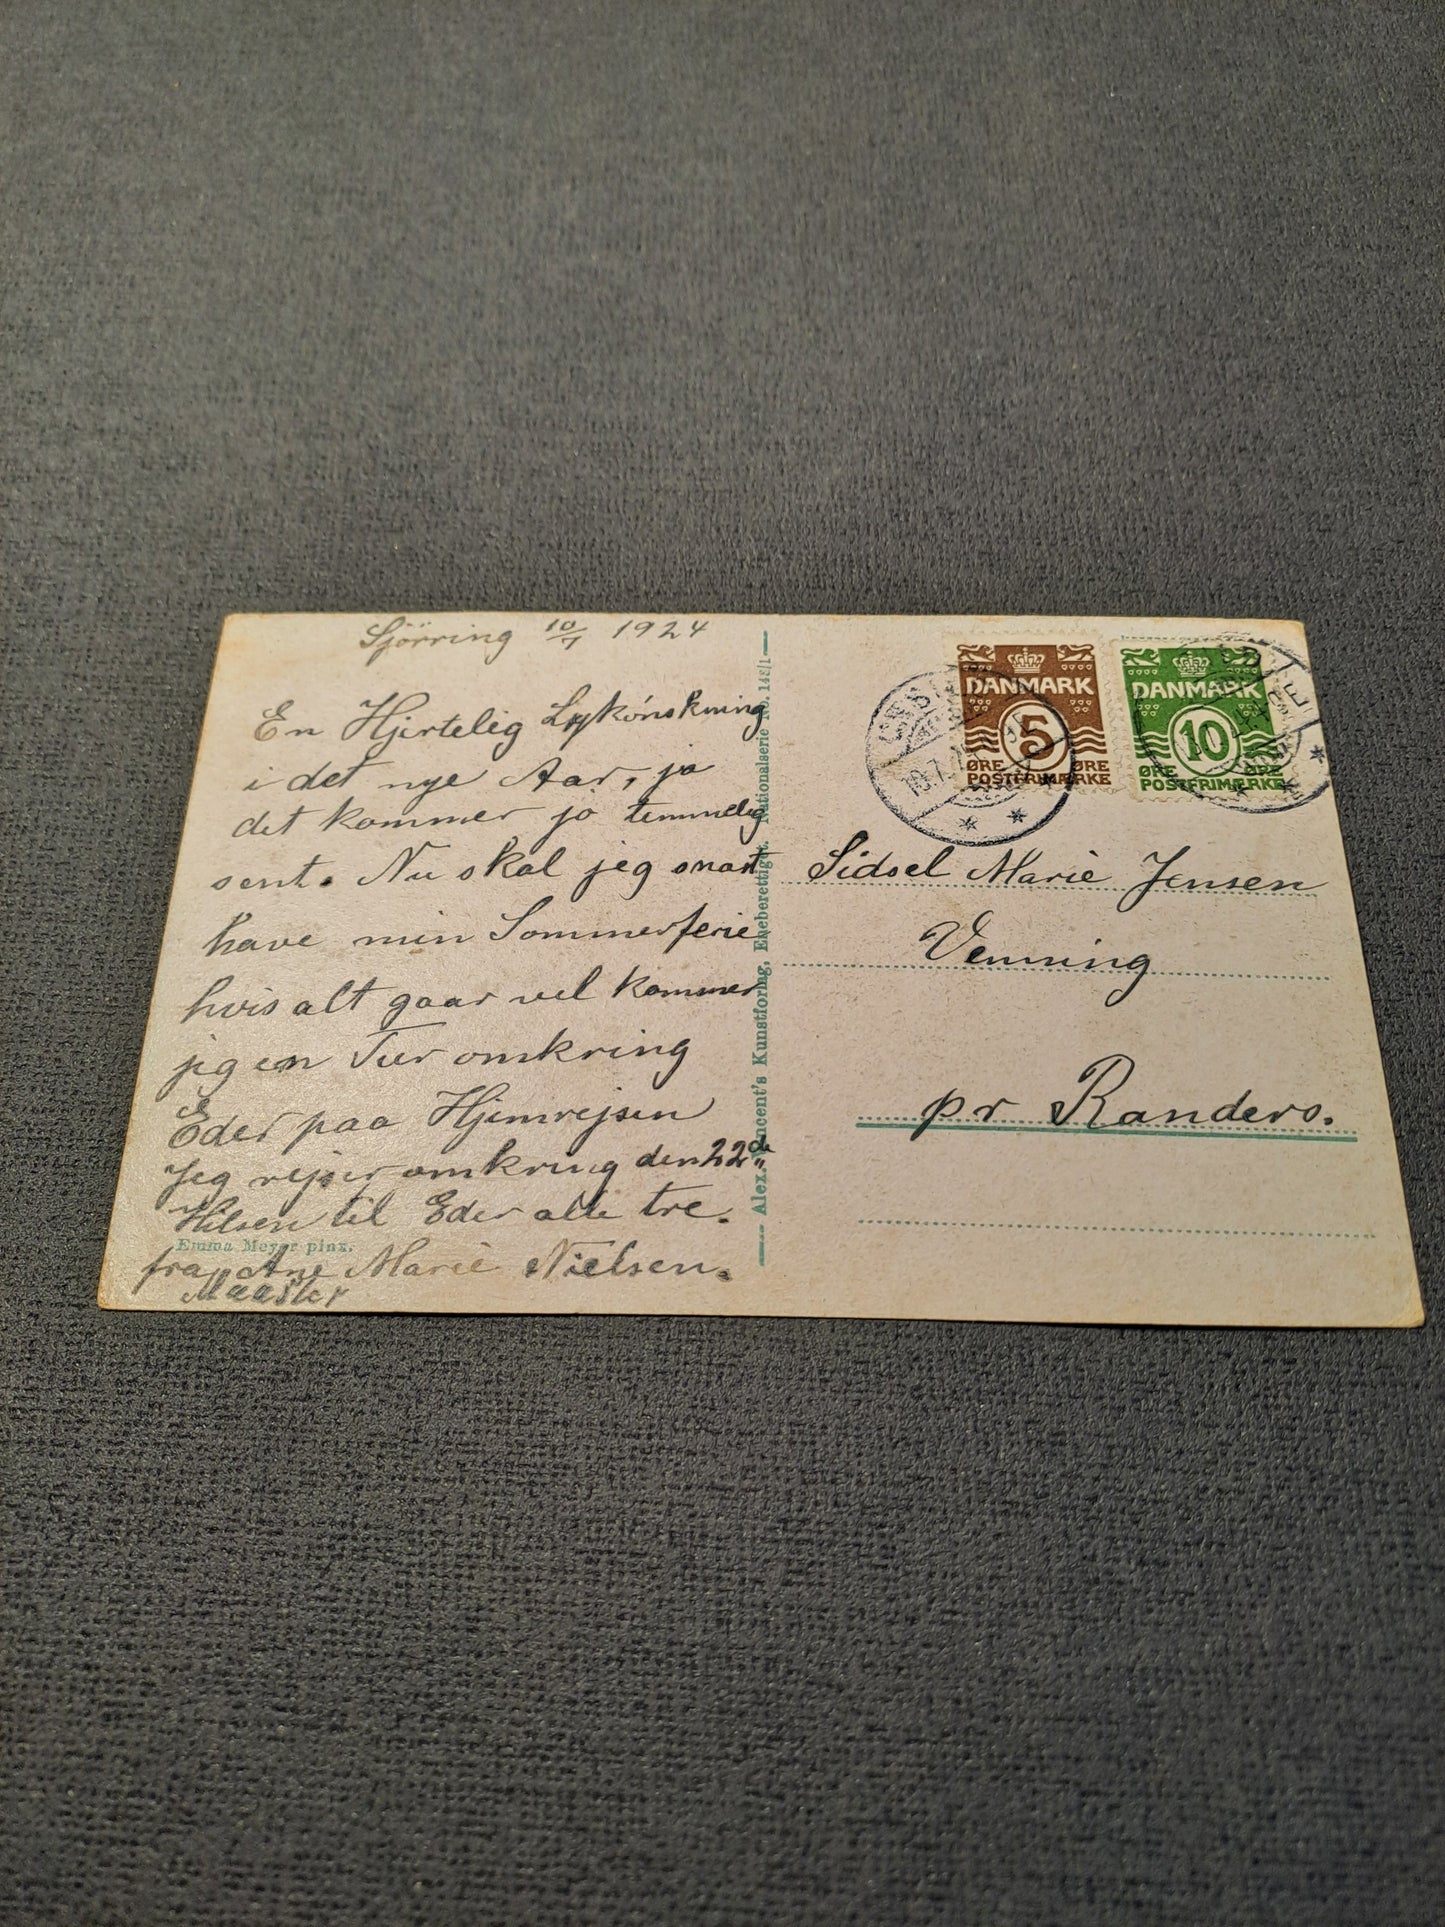 Sjörring 10/7 1924
En Hjertelig Lykönskning
i det nye Aar, ja
det kommer jo temmelig
sent. Nu skal jeg snart
have min Sommerferie
hvis alt gaar vel kommer
jeg en Tur omkring
Eder paa Hjemrejsen
Jeg rejser omkring den 22de
Hilsen til Eder alle tre.
Emma Meyer pinx.
fra Ane Marie Nielsen.
Alex. Vincent's Kunstforlag, Eneberettiget. Nationalserie No. 148/1
DANMARK
5
ØRE ØRE
POSTFRIMÆRKE
DANMARK
10
ØRE ØRE
POSTFRIMÆRKE
Sidsel Marie Jensen
Venning
pr Randers.